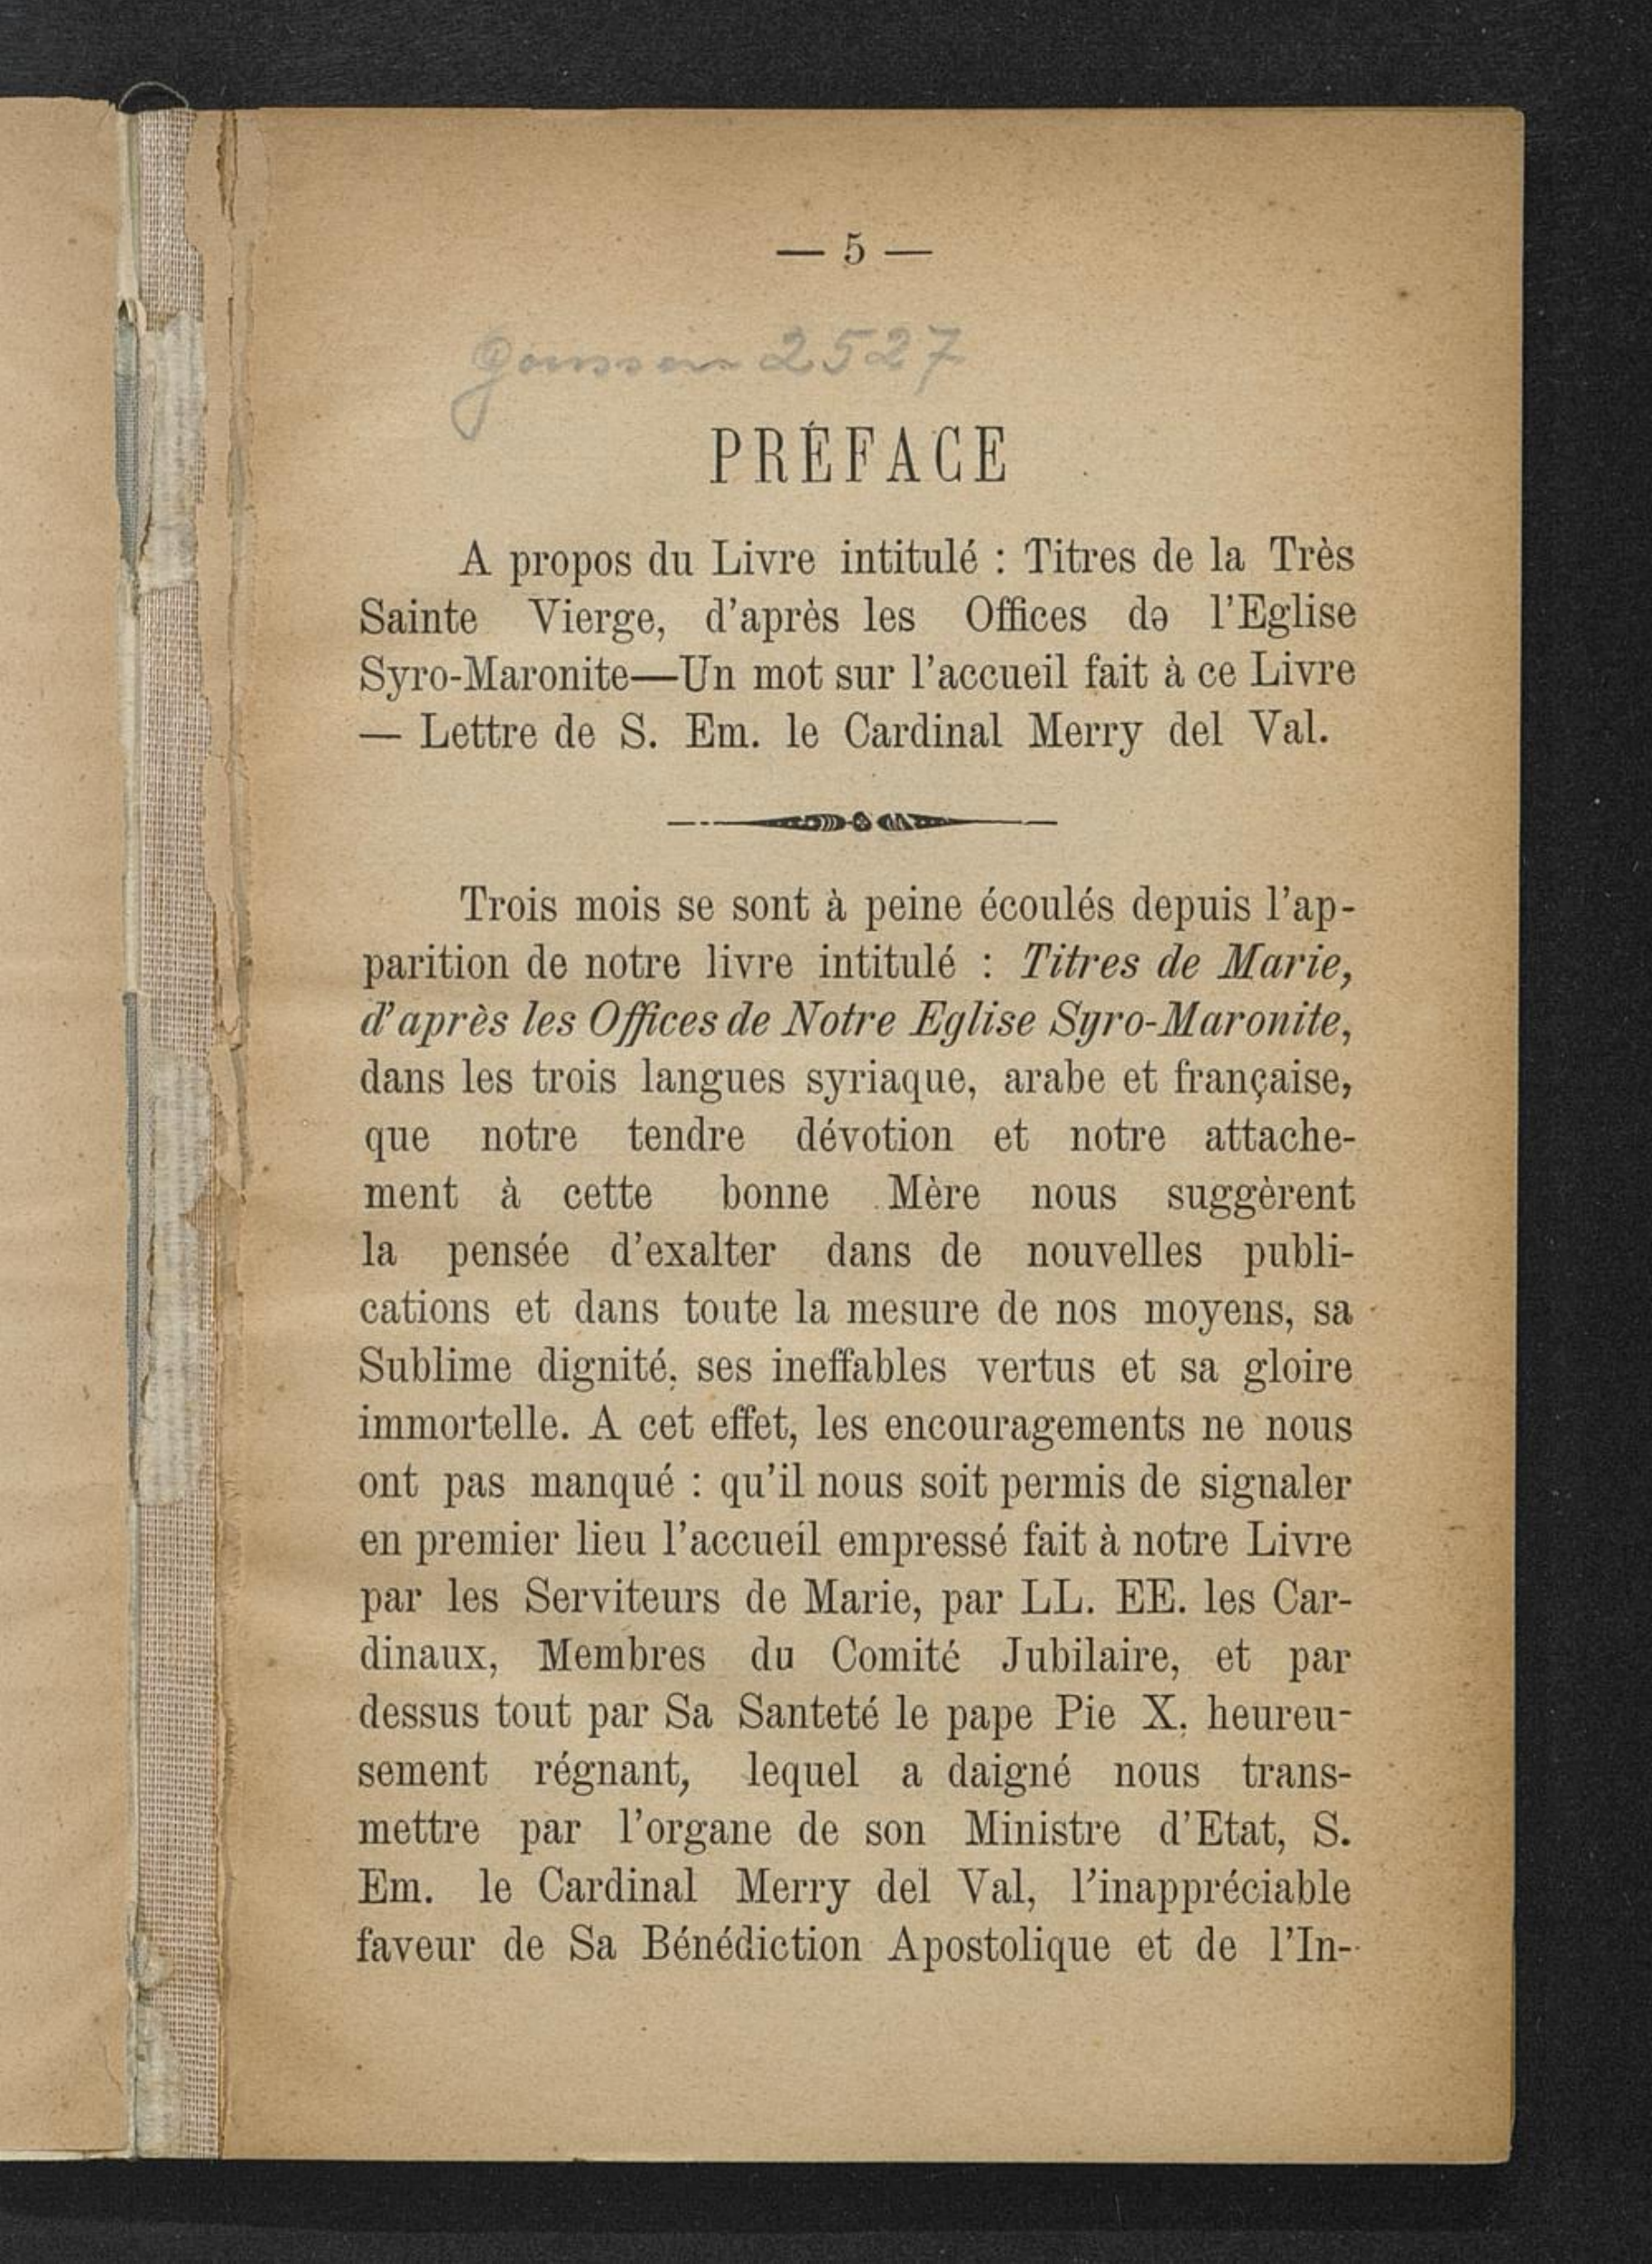 — 5 —
Goussen 2527
PRÉFACE
A propos du Livre intitulé : Titres de la Très
Sainte Vierge, d'après les Offices de l'Eglise
Syro-Maronite—Un mot sur l'accueil fait à ce Livre
— Lettre de S. Em. le Cardinal Merry del Val.
Trois mois se sont à peine écoulés depuis l'ap-
parition de notre livre intitulé : Titres de Marie,
d'après les Offices de Notre Eglise Syro-Maronite,
dans les trois langues syriaque, arabe et française,
que notre tendre dévotion et notre attache-
ment à cette bonne Mère nous suggèrent
la pensée d'exalter dans de nouvelles publi-
cations et dans toute la mesure de nos moyens, sa
Sublime dignité, ses ineffables vertus et sa gloire
immortelle. A cet effet, les encouragements ne nous
ont pas manqué : qu'il nous soit permis de signaler
en premier lieu l'accueil empressé fait à notre Livre
par les Serviteurs de Marie, par LL. EE. les Car-
dinaux, Membres du Comité Jubilaire, et par
dessus tout par Sa Santeté le pape Pie X, heureu-
sement régnant, lequel a daigné nous trans-
mettre par l'organe de son Ministre d'Etat, S.
Em. le Cardinal Merry del Val, l'inappréciable
faveur de Sa Bénédiction Apostolique et de l'In-